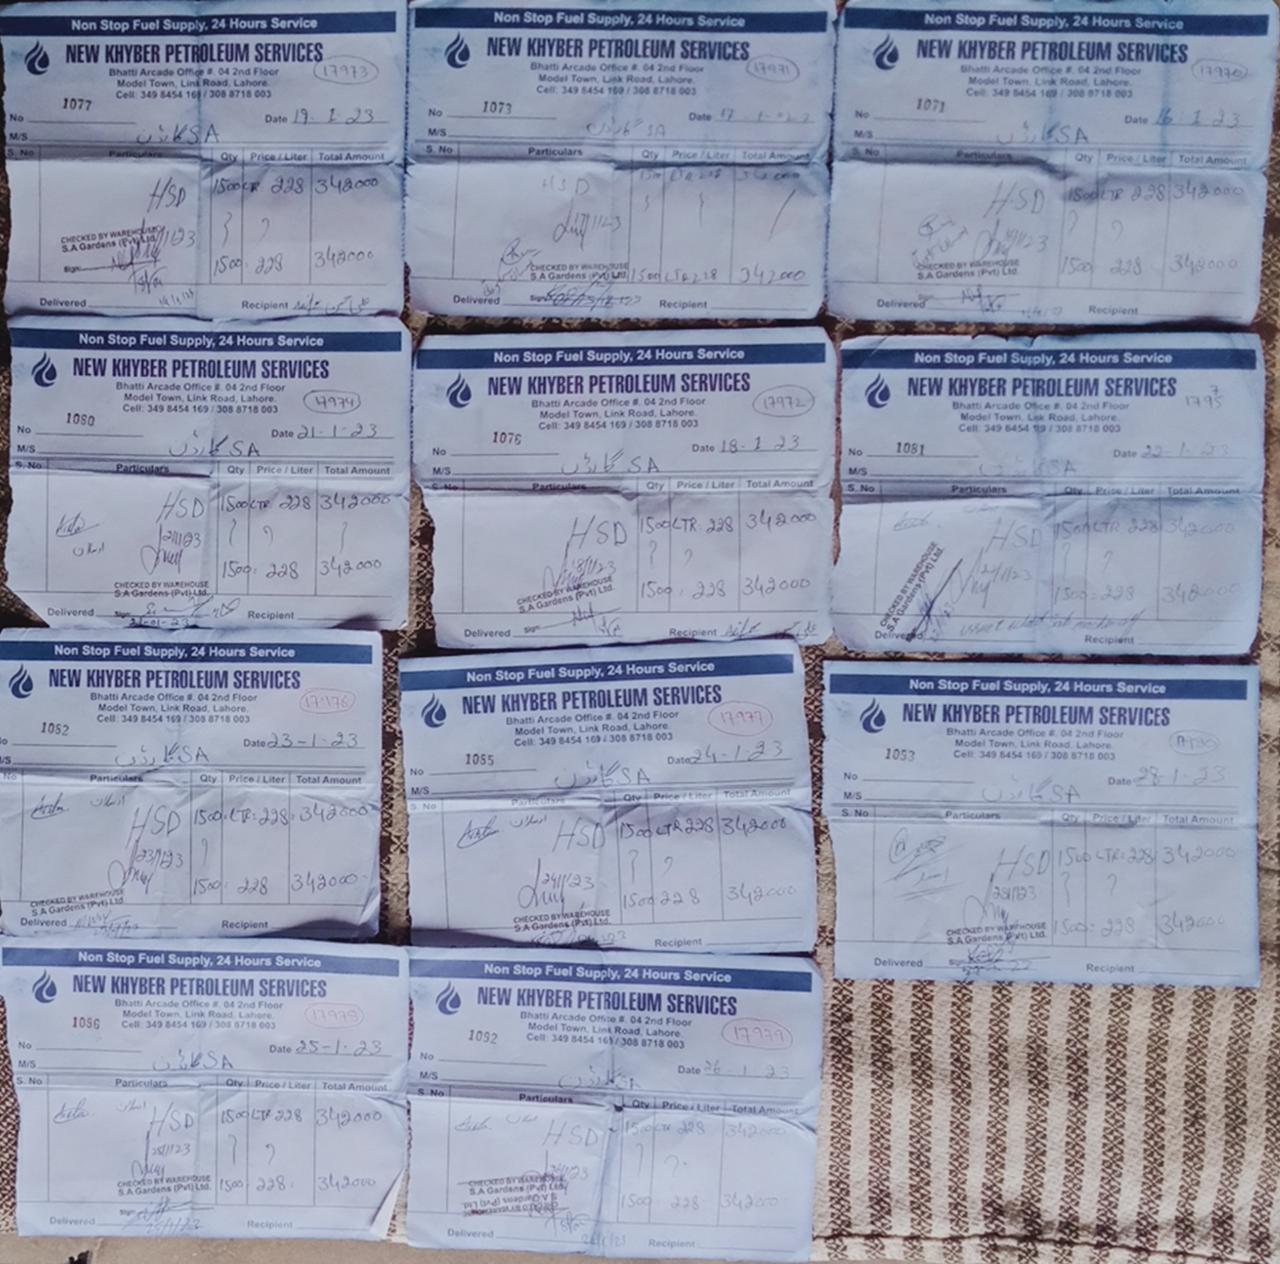 Non Stop Fuel Supply, 24 Hours Service
NEW KHYBER PETROLEUM SERVICES
Bhatti Arcade Office #. 04 2nd Floor
Model Town, Link Road, Lahore.
Cell: 349 8454 169 / 308 8718 003
17973
No 1077
Date 19-1-23
M/S گارڈن SA
S. No Particulars Qty Price / Liter Total Amount
HSD 1500 LTR 228 342000
CHECKED BY WAREHOUSE
S.A Gardens (Pvt) Ltd.
Sign:
1500 228 342000
Delivered Recipient
Non Stop Fuel Supply, 24 Hours Service
NEW KHYBER PETROLEUM SERVICES
Bhatti Arcade Office #. 04 2nd Floor
Model Town, Link Road, Lahore.
Cell: 349 8454 169 / 308 8718 003
17971
No 1073
Date 17-1
M/S گارڈن SA
S. No Particulars Qty Price / Liter Total Amount
HSD
17/1/23
CHECKED BY WAREHOUSE
S.A Gardens (Pvt) Ltd.
1500 LTR 228 342000
Delivered Sign: Recipient
Non Stop Fuel Supply, 24 Hours Service
NEW KHYBER PETROLEUM SERVICES
Bhatti Arcade Office #. 04 2nd Floor
Model Town, Link Road, Lahore.
Cell: 349 8454 169 / 308 8718 003
17970
No 1071
Date 16-1-23
M/S گارڈن SA
S. No Particulars Qty Price / Liter Total Amount
HSD 1500 LTR 228 342000
CHECKED BY WAREHOUSE
S.A Gardens (Pvt) Ltd.
1500 228 342000
Delivered Recipient
Non Stop Fuel Supply, 24 Hours Service
NEW KHYBER PETROLEUM SERVICES
Bhatti Arcade Office #. 04 2nd Floor
Model Town, Link Road, Lahore.
Cell: 349 8454 169 / 308 8718 003
17974
No 1080
Date 21-1-23
M/S گارڈن SA
S. No Particulars Qty Price / Liter Total Amount
HSD 1500 LTR 228 342000
21/1/23
ارسلان
1500 228 342000
CHECKED BY WAREHOUSE
S.A Gardens (Pvt) Ltd.
Delivered Sign: Recipient
21-01-23
Non Stop Fuel Supply, 24 Hours Service
NEW KHYBER PETROLEUM SERVICES
Bhatti Arcade Office #. 04 2nd Floor
Model Town, Link Road, Lahore.
Cell: 349 8454 169 / 308 8718 003
17972
No 1076
Date 18-1-23
M/S گارڈن SA
S. No Particulars Qty Price / Liter Total Amount
HSD 1500 LTR 228 342000
18/1/23
CHECKED BY WAREHOUSE
S.A Gardens (Pvt) Ltd.
1500 228 342000
Delivered Sign: Recipient
Non Stop Fuel Supply, 24 Hours Service
NEW KHYBER PETROLEUM SERVICES
Bhatti Arcade Office #. 04 2nd Floor
Model Town, Link Road, Lahore.
Cell: 349 8454 169 / 308 8718 003
No 1081
Date 22-1-23
M/S گارڈن SA
S. No Particulars Qty Price / Liter Total Amount
HSD 1500 LTR 228 342000
CHECKED BY WAREHOUSE
S.A Gardens (Pvt) Ltd.
1500 228 342000
Delivered Recipient
Non Stop Fuel Supply, 24 Hours Service
NEW KHYBER PETROLEUM SERVICES
Bhatti Arcade Office #. 04 2nd Floor
Model Town, Link Road, Lahore.
Cell: 349 8454 169 / 308 8718 003
17976
1052
Date 23-1-23
گارڈن SA
No Particulars Qty Price / Liter Total Amount
ارسلان
HSD 1500 LTR 228 342000
23/1/23
1500 228 342000
CHECKED BY WAREHOUSE
S.A Gardens (Pvt) Ltd.
Delivered Recipient
Non Stop Fuel Supply, 24 Hours Service
NEW KHYBER PETROLEUM SERVICES
Bhatti Arcade Office #. 04 2nd Floor
Model Town, Link Road, Lahore.
Cell: 349 8454 169 / 308 8718 003
17977
No 1055
Date 24-1-23
M/S گارڈن SA
S. No Particulars Qty Price / Liter Total Amount
ارسلان
HSD 1500 LTR 228 342000
24/1/23
1500 228 342000
CHECKED BY WAREHOUSE
S.A Gardens (Pvt) Ltd.
Non Stop Fuel Supply, 24 Hours Service
NEW KHYBER PETROLEUM SERVICES
Bhatti Arcade Office #. 04 2nd Floor
Model Town, Link Road, Lahore.
Cell: 349 8454 169 / 308 8718 003
No 1053
Date 28-1-23
M/S گارڈن SA
S. No Particulars Qty Price / Liter Total Amount
HSD 1500 LTR 228 342000
28/1/23
1500 228 342000
CHECKED BY WAREHOUSE
S.A Gardens (Pvt) Ltd.
Delivered Sign: Recipient
Non Stop Fuel Supply, 24 Hours Service
NEW KHYBER PETROLEUM SERVICES
Bhatti Arcade Office #. 04 2nd Floor
Model Town, Link Road, Lahore.
Cell: 349 8454 169 / 308 8718 003
No 1056
Date 25-1-23
M/S گارڈن SA
S. No Particulars Qty Price / Liter Total Amount
ارسلان
HSD 1500 LTR 228 342000
25/1/23
CHECKED BY WAREHOUSE
S.A Gardens (Pvt) Ltd.
1500 228 342000
Sign:
Delivered Recipient
Non Stop Fuel Supply, 24 Hours Service
NEW KHYBER PETROLEUM SERVICES
Bhatti Arcade Office #. 04 2nd Floor
Model Town, Link Road, Lahore.
Cell: 349 8454 169 / 308 8718 003
17979
No 1092
Date 26-1-23
M/S گارڈن SA
S. No Particulars Qty Price / Liter Total Amount
HSD 1500 LTR 228 342000
CHECKED BY WAREHOUSE
1500 228 342000
Delivered Recipient